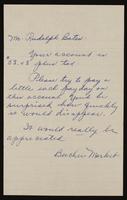 Mr. Rudolph Bates
Your account is
33.03 plus tax
Please try to pay a
little each pay day on
this account. You'd be
surprised how quickly
it would disappear.
It would really be
appreciated
Market